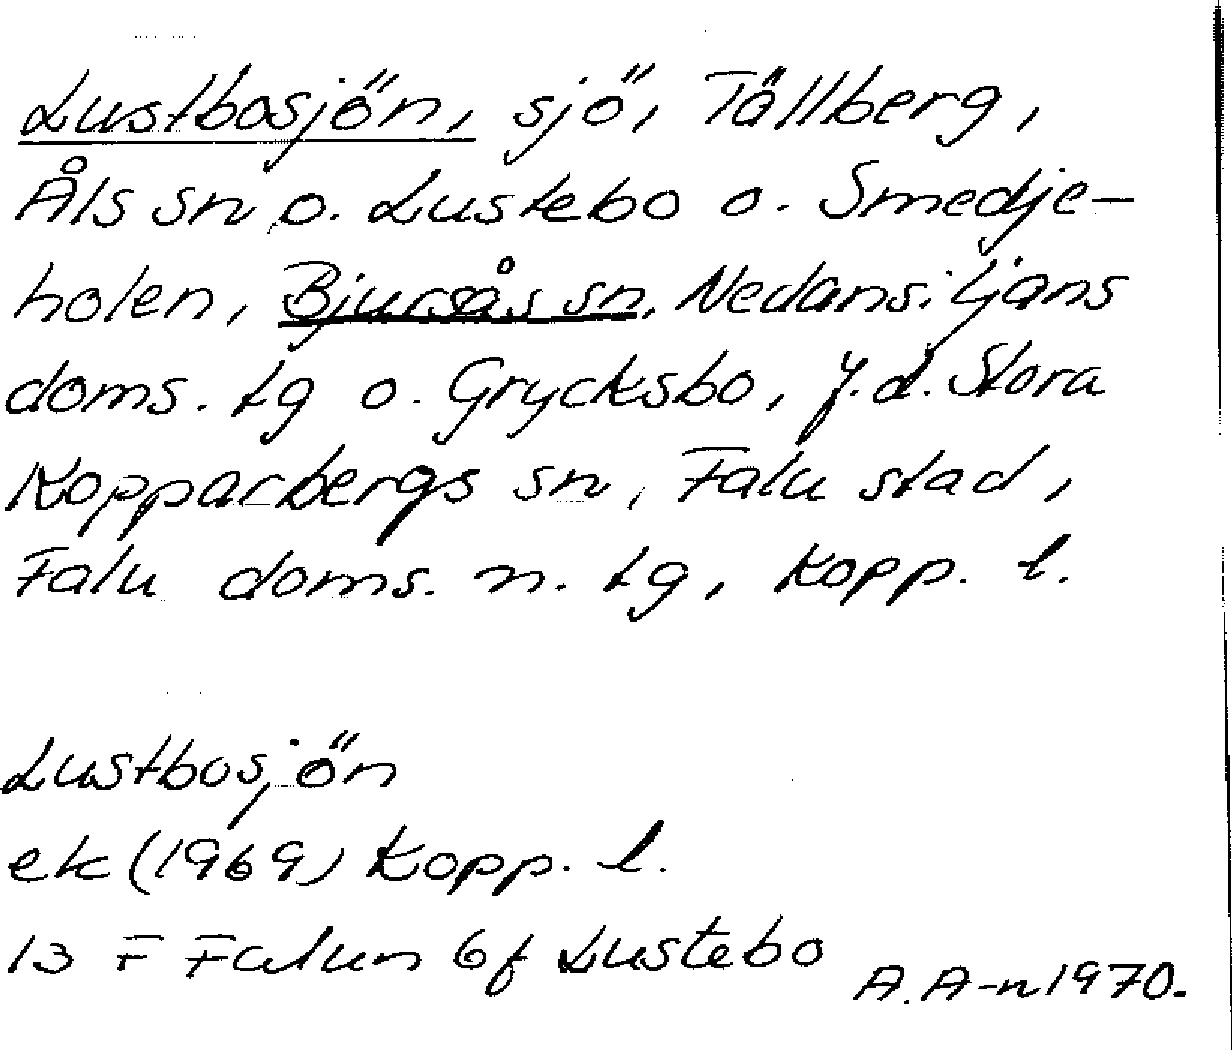 Lustbosjön, sjö, Tällberg,
Åls sn o. Lustebo o. Smedje-
holen, Bjursås sn, Nedansiljans
doms. tg o. Grycksbo, f.d. Stora
Kopparbergs sn, Falu stad,
Falu doms. n. tg, Kopp. l.
Lustbosjön
ek (1969) Kopp. l.
13 F Falun 6f Lustebo
A. A-n 1970.